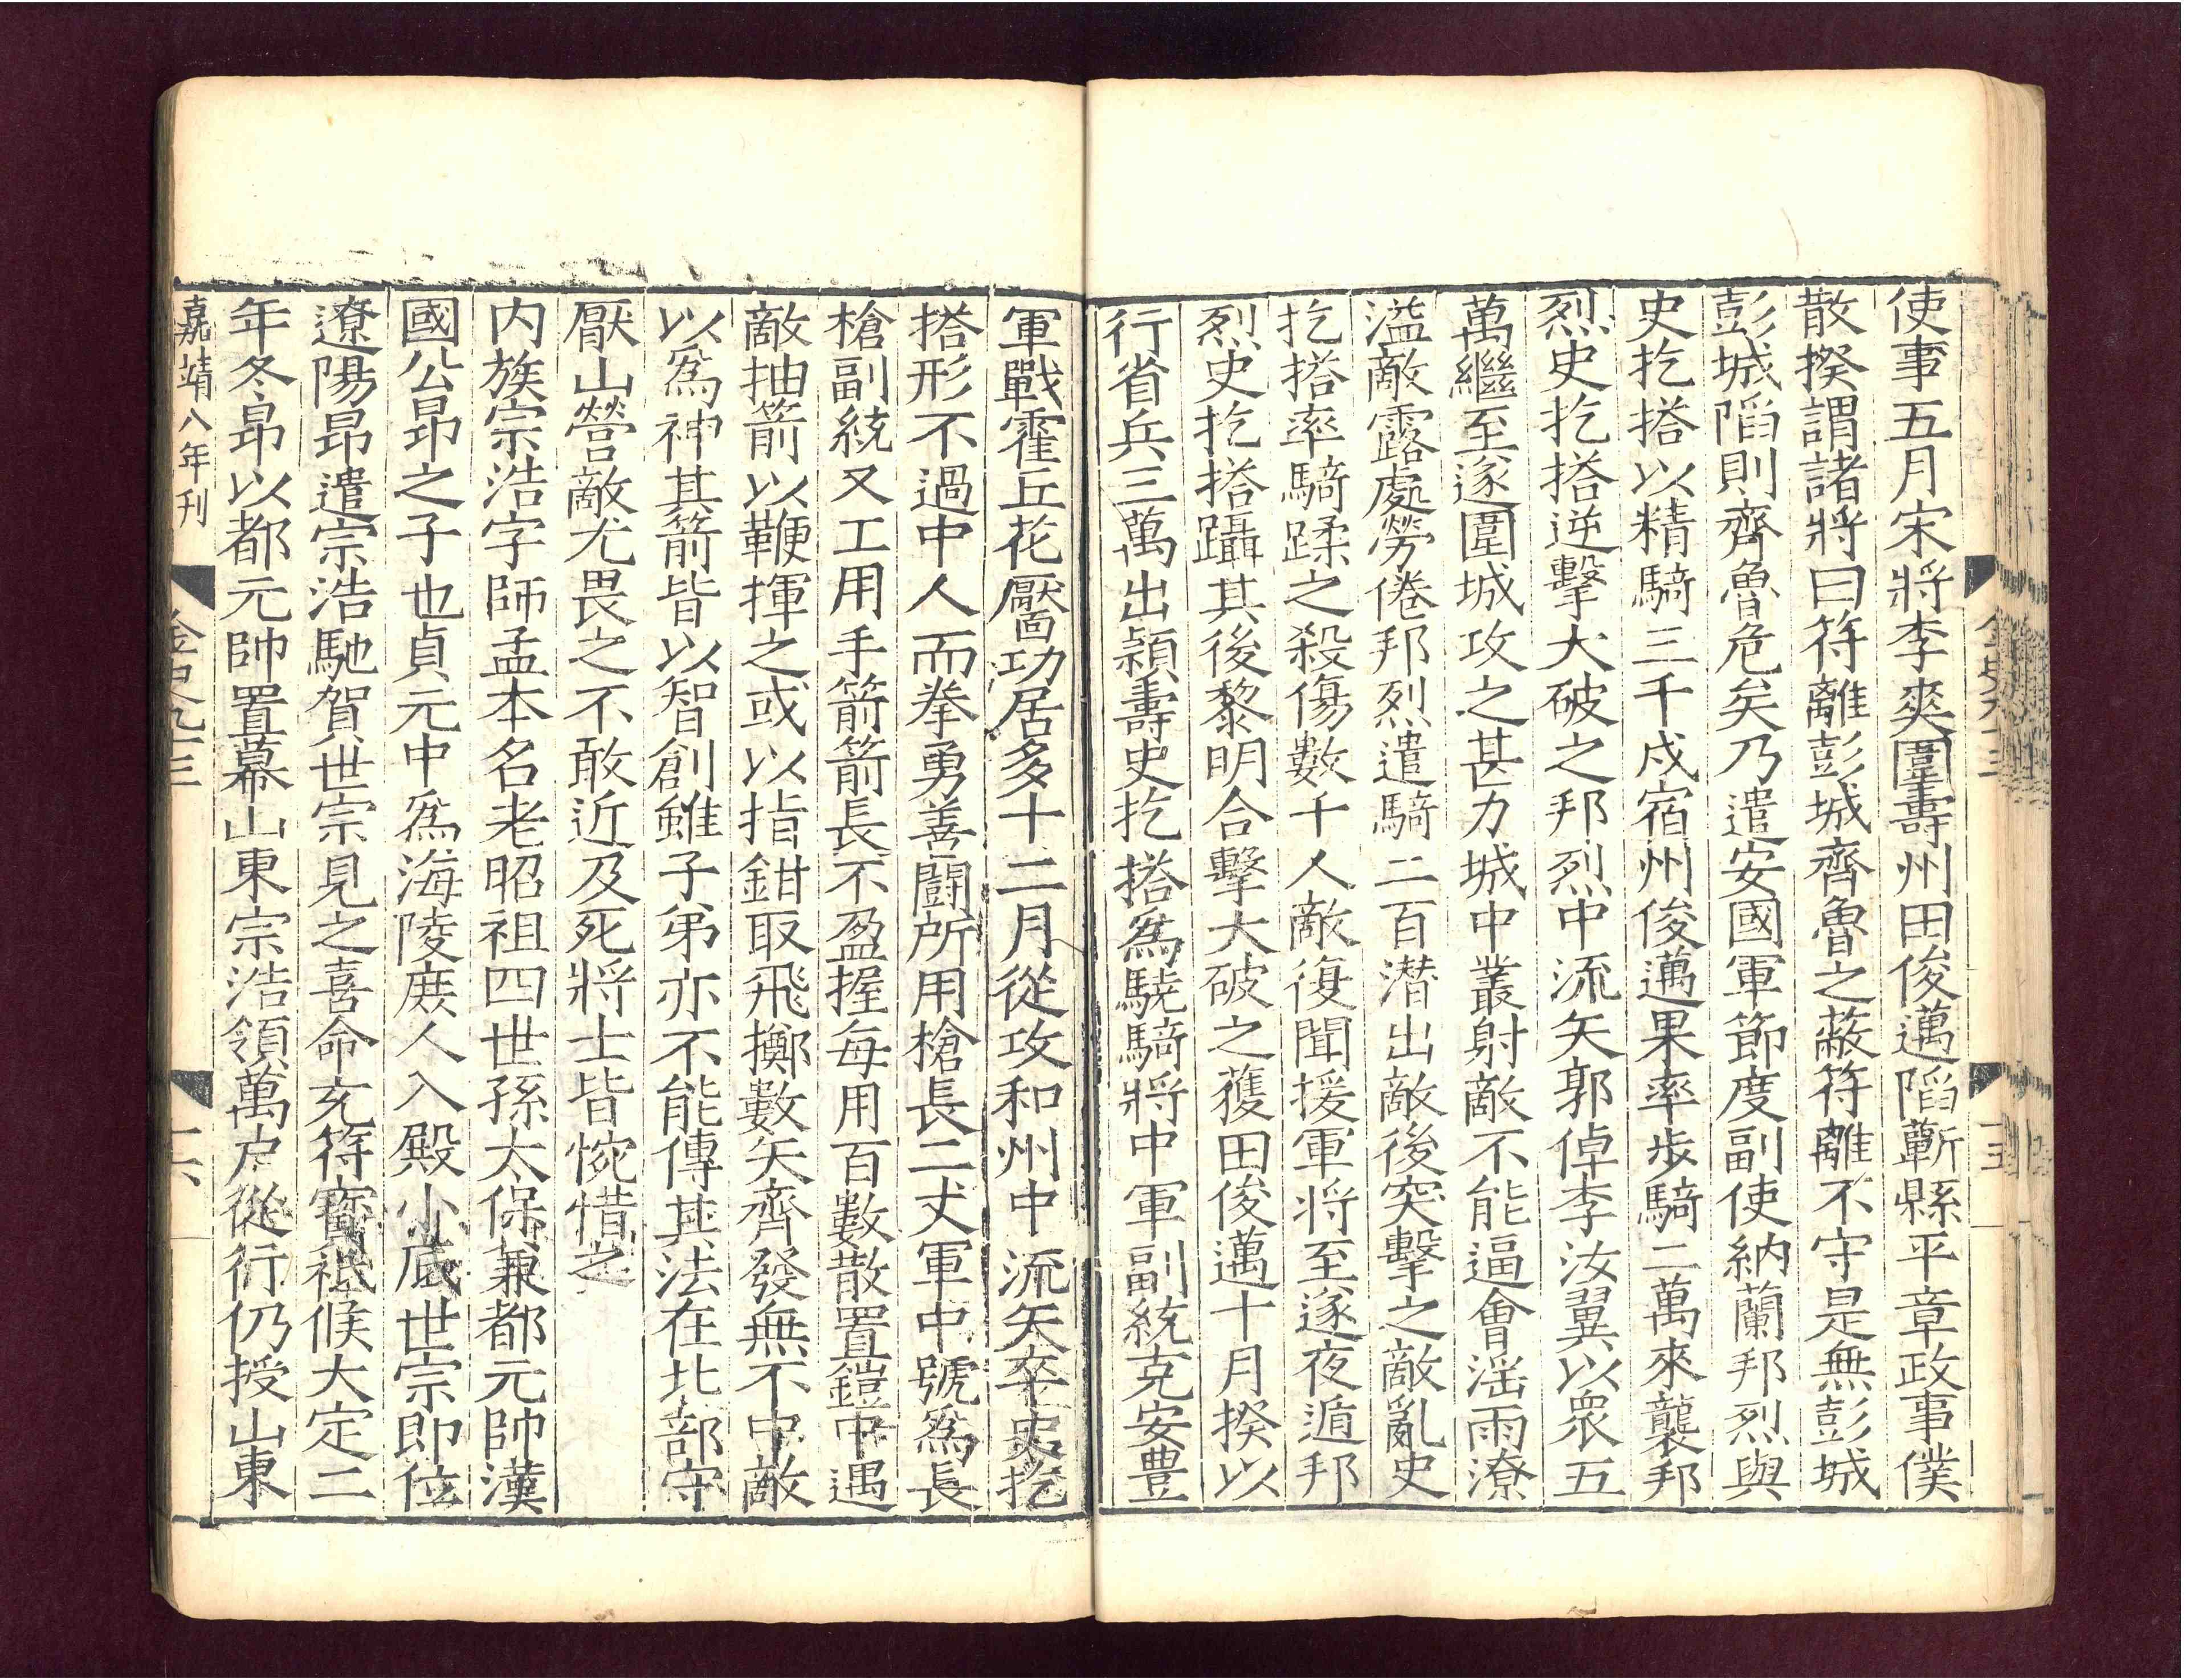 使事五月宋將李爽圍壽州田俊邁䧟蘄縣平章政事僕
散揆謂諸將曰符離彭城齊魯之蔽符離不守是無彭城
彭城䧟則齊魯危矣乃遣安國軍節度副使納蘭邦烈與
史扢搭以精騎三千戍宿州俊邁果率步騎二萬來襲邦
烈史扢搭逆擊大破之邦烈中流矢郭倬李汝翼以衆五
萬繼至遂圍城攻之甚力城中叢射敵不能逼會滛雨潦
溢敵露處勞倦邦烈遣騎二百潜出敵後突擊之敵亂史
扢搭率騎蹂之殺傷數千人敵復聞援軍將至遂夜遁邦
烈史扢搭躡其後黎明合擊大破之獲田俊邁十月揆以
行省兵三萬出潁壽史扢搭爲驍騎將中軍副統克安豊
軍戰霍丘花靨功居多十二月從攻和州中流矢卒史扢
搭形不過中人而拳勇善鬪所用槍長二丈軍中號爲長
槍副統又工用手箭箭長不盈握每用百數散置鎧中遇
敵抽箭以鞭揮之或以指鉗取飛擲數矢齊發無不中敵
以爲神其箭皆以智創雖子弟亦不能傳其法在北部守
厭山營敵尤畏之不敢近及死將士皆惋惜之
内族宗浩字師孟本名老昭祖四世孫太保兼都元帥漢
國公昂之子也貞元中爲海陵庶人入殿小底世宗即位
遼陽昂遣宗浩馳賀世宗見之喜命充符寳祗候大定二
年冬昂以都元帥置幕山東宗浩領萬户從行仍授山東
嘉靖八年刊
金史九十三
十六